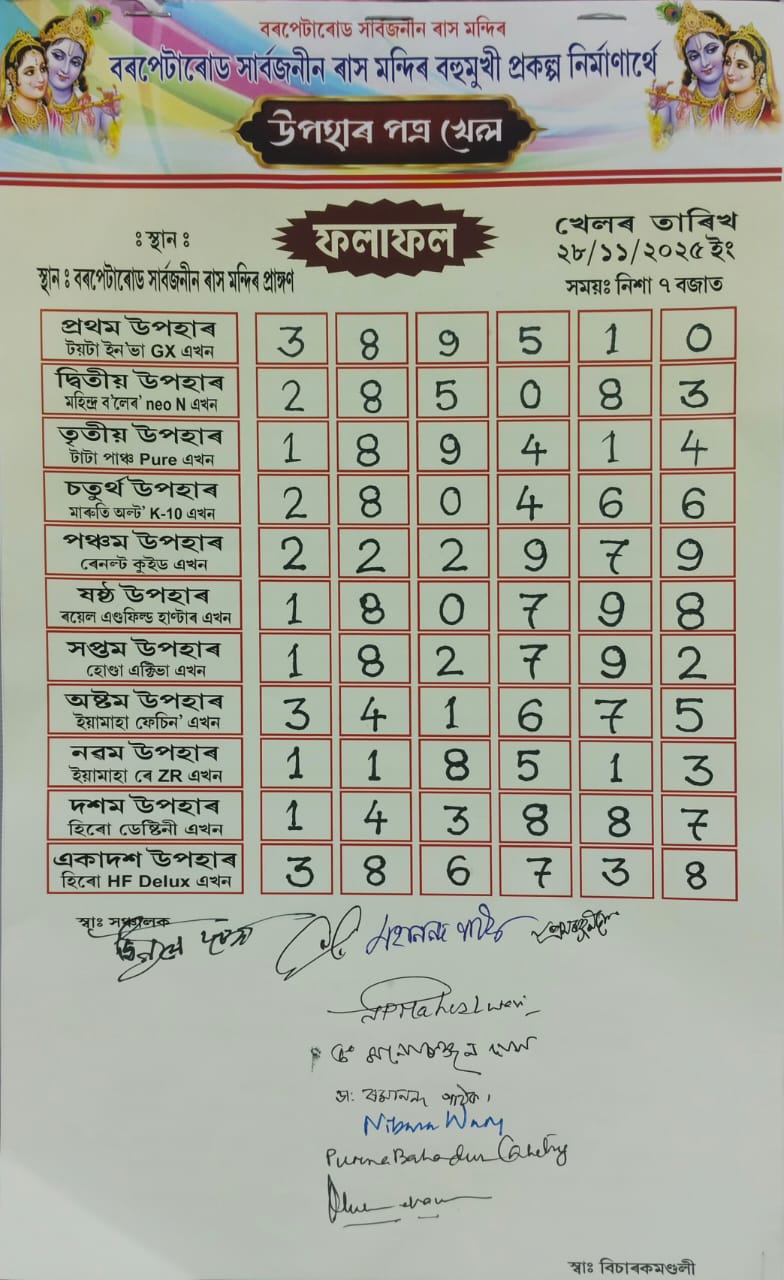 বৰপেটাৰোড সাৰ্বজনীন ৰাস মন্দিৰ
বৰপেটাৰোড সাৰ্বজনীন ৰাস মন্দিৰ বহুমুখী প্ৰকল্প নিৰ্মাণাৰ্থে
উপহাৰ পত্ৰ খেল
ফলাফল
খেলৰ তাৰিখ
২৮/১১/২০২৫ ইং
সময়ঃ নিশা ৭ বজাত
ঃ স্থান ঃ
স্থান ঃ বৰপেটাৰোড সাৰ্বজনীন ৰাস মন্দিৰ প্ৰাঙ্গণ
প্ৰথম উপহাৰ 3 8 9 5 1 0
টয়টা ইন'ভা GX এখন
দ্বিতীয় উপহাৰ 2 8 5 0 8 3
মহিন্দ্ৰ ব'লেৰ' neo N এখন
তৃতীয় উপহাৰ 1 8 9 4 1 4
টাটা পাঞ্চ Pure এখন
চতুৰ্থ উপহাৰ 2 8 0 4 6 6
মাৰুতি অল্ট' K-10 এখন
পঞ্চম উপহাৰ 2 2 2 9 7 9
ৰেনল্ট কুইড এখন
ষষ্ঠ উপহাৰ 1 8 0 7 9 8
ৰয়েল এণ্ডফিল্ড হাণ্টাৰ এখন
সপ্তম উপহাৰ 1 8 2 7 9 2
হোণ্ডা এক্টিভা এখন
অষ্টম উপহাৰ 3 4 1 6 7 5
ইয়ামাহা ফেচিন' এখন
নৱম উপহাৰ 1 1 8 5 1 3
ইয়ামাহা ৰে ZR এখন
দশম উপহাৰ 1 4 3 8 8 7
হিৰো ডেষ্টিনী এখন
একাদশ উপহাৰ 3 8 6 7 3 8
হিৰো HF Delux এখন
স্বাঃ সঞ্চালক
মহানন্দ পাঠক
NPMaheshwari
ডাঃ ৰমানন্দ পাঠক।
Purna Bahadur Chetry
স্বাঃ বিচাৰকমণ্ডলী